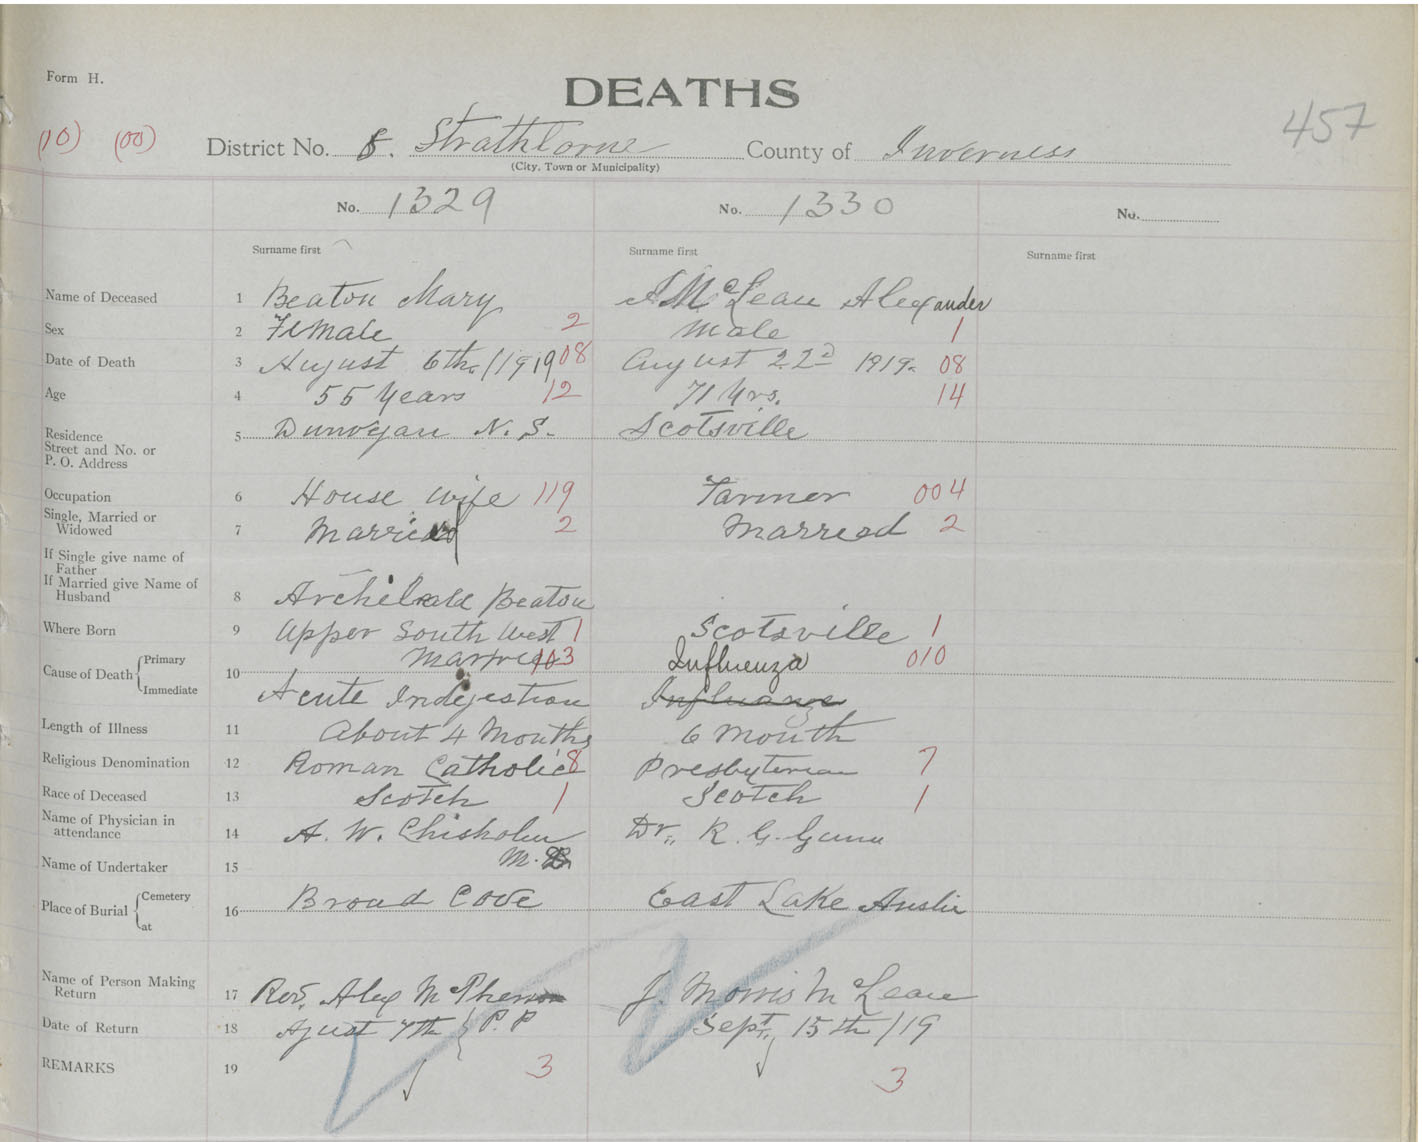 Form H.
DEATHS
457
(10) (00) District No. 8. Strathlorne County of Inverness
(City, Town or Municipality)
No. 1329 No. 1330 No.
Surname first Surname first Surname first
Name of Deceased 1 Beaton Mary McLean Alexander
Sex 2 Female 2 Male 1
Date of Death 3 August 6th /1919 08 August 22d 1919. 08
Age 4 55 Years 12 71 Yrs. 14
Residence
Street and No. or
P. O. Address
5 Dunvegan N. S. Scotsville
Occupation 6 House wife 119 Farmer 004
Single, Married or
Widowed 7 Married 2 Married 2
If Single give name of
Father
If Married give Name of
Husband 8 Archibald Beaton
Where Born 9 Upper South West 1 Scotsville 1
Margree 103 Influenza 010
Cause of Death { Primary
Immediate 10
Acute Indigestion Influanze
Length of Illness 11 About 4 Months 6 Month
Religious Denomination 12 Roman Catholic 8 Presbyterian 7
Race of Deceased 13 Scotch 1 Scotch 1
Name of Physician in
attendance 14 A. W. Chisholm Dr. R. G. Gunn
M. D
Name of Undertaker 15
Place of Burial { Cemetery
at 16 Broad Cove East Lake Anslie
Name of Person Making
Return 17 Rev. Alex McPherson J. Morris McLean
Date of Return 18 Agust 7th P. P Sept. 15th /19
REMARKS 19 3 3